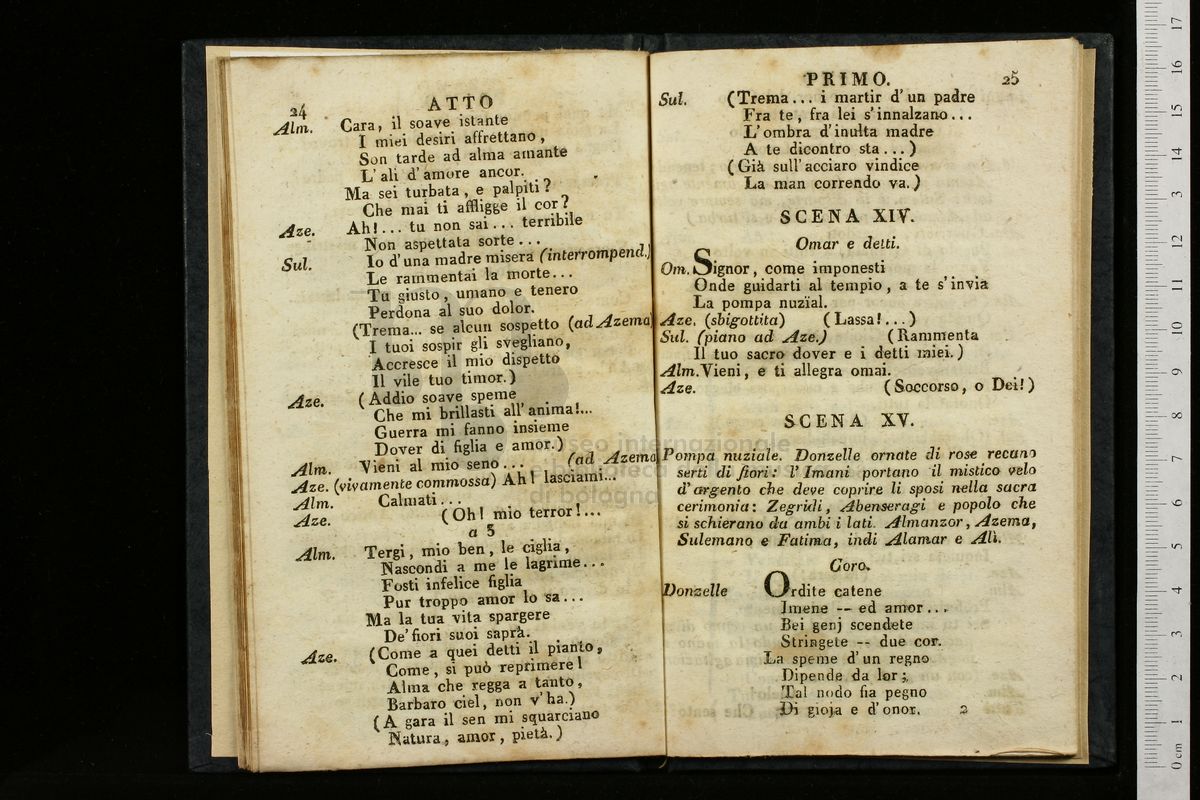 24
ATTO
Alm. Cara, il soave istante
I miei desiri affrettano,
Son tarde ad alma amante
L'ali d'amore ancor.
Ma sei turbata, e palpiti?
Che mai ti affligge il cor?
Aze. Ah!... tu non sai... terribile
Non aspettata sorte...
Sul. Io d'una madre misera (interrompend.)
Le rammentai la morte...
Tu giusto, umano e tenero
Perdona al suo dolor.
(Trema... se alcun sospetto (ad Azema)
I tuoi sospir gli svegliano,
Accresce il mio dispetto
Il vile tuo timor.)
Aze. (Addio soave speme
Che mi brillasti all'anima!...
Guerra mi fanno insieme
Dover di figlia e amor.)
Alm. Vieni al mio seno... (ad Azema
Aze. (vivamente commossa) Ah! lasciami...
Alm. Calmati...
Aze. (Oh! mio terror!...
a 3
Alm. Tergi, mio ben, le ciglia,
Nascondi a me le lagrime...
Fosti infelice figlia
Pur troppo amor lo sa...
Ma la tua vita spargere
De' fiori suoi saprà.
Aze. (Come a quei detti il pianto,
Come, si può reprimere!
Alma che regga a tanto,
Barbaro ciel, non v'ha.)
(A gara il sen mi squarciano
Natura, amor, pietà.)
PRIMO.
25
Sul. (Trema... i martir d'un padre
Fra te, fra lei s'innalzano...
L'ombra d'inulta madre
A te dicontro sta...)
(Già sull'acciaro vindice
La man correndo va.)
SCENA XIV.
Omar e detti.
Om. Signor, come imponesti
Onde guidarti al tempio, a te s'invia
La pompa nuzïal.
Aze. (sbigottita) (Lassa!...)
Sul. (piano ad Aze.) (Rammenta
Il tuo sacro dover e i detti miei.)
Alm. Vieni, e ti allegra omai.
Aze. (Soccorso, o Dei!)
SCENA XV.
Pompa nuziale. Donzelle ornate di rose recano
serti di fiori: l'Imani portano il mistico velo
d'argento che deve coprire li sposi nella sacra
cerimonia: Zegridi, Abenseragi e popolo che
si schierano da ambi i lati. Almanzor, Azema,
Sulemano e Fatima, indi Alamar e Alì.
Coro.
Donzelle Ordite catene
Imene -- ed amor...
Bei genj scendete
Stringete -- due cor.
La speme d'un regno
Dipende da lor;
Tal nodo fia pegno
Di gioja e d'onor. 2
museo internazionale
e biblioteca
di bologna
17
16
15
14
13
12
11
10
9
8
7
6
5
4
3
2
1
0 cm